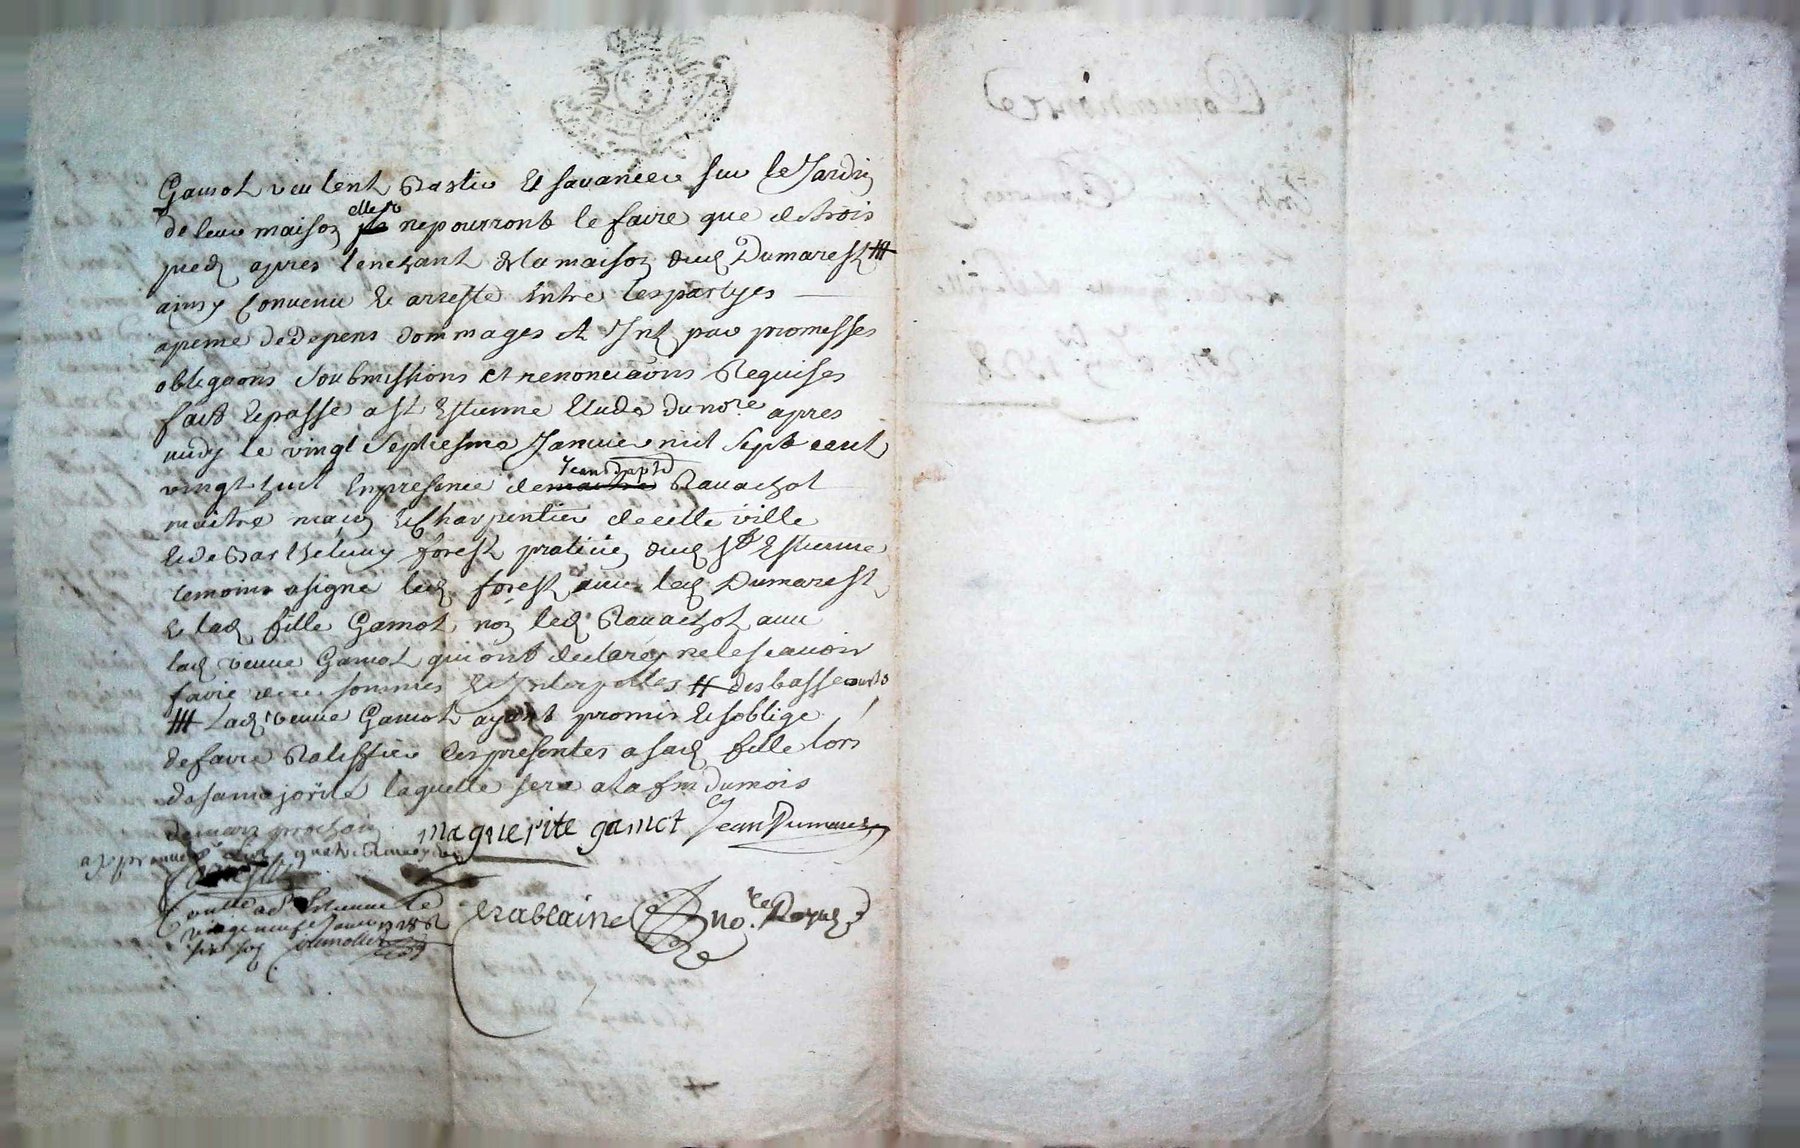 Gamot veulent Bastir et savancer sur le Jardin
de leur maison elles ne pourront le faire que de trois
pieds apres lenchant de la maison dud Dumarest #
ainsy Convenu et arresté Entre les partyes
a peine de depens dommages et Int par promesses
obligaons soubmissions et renonciaons Requises
fait et passé a St Estienne Etude du nore apres
midy le vingt septiesme Janvier mil sept cent
vingt huit En presence de Jean Bapte Ravachol
maitre maçon et Charpentier de cette ville
et de Barthelemy forest praticien dud St Estienne
temoins a signé led forest avec led Dumarest
et lad fille Gamot, non led Ravachol avec
lad veuve Gamot qui ont declaré ne le scavoir
faire de ce sommés et Interpellés # des basse cours
# Lad veuve Gamot ayant promis et soblige
de faire Ratiffier les presentes a sad fille lors
de sa majorité laquelle sera a la fin du mois
de mars prochain
maguerite gamot Jean Dumarest
approuvé
forest
Contlé a St Estienne le
vingt neuf Janvier 1728
six sol
Brablaine nore Royal